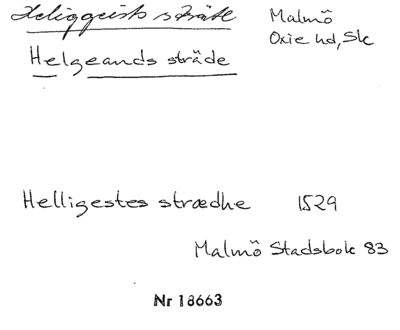 Heliggeists sträte Malmö
Oxie hd, Sk
Helgeands stræde
Helligestes strædhe 1529
Malmö Stadsbok 83
Nr 18663